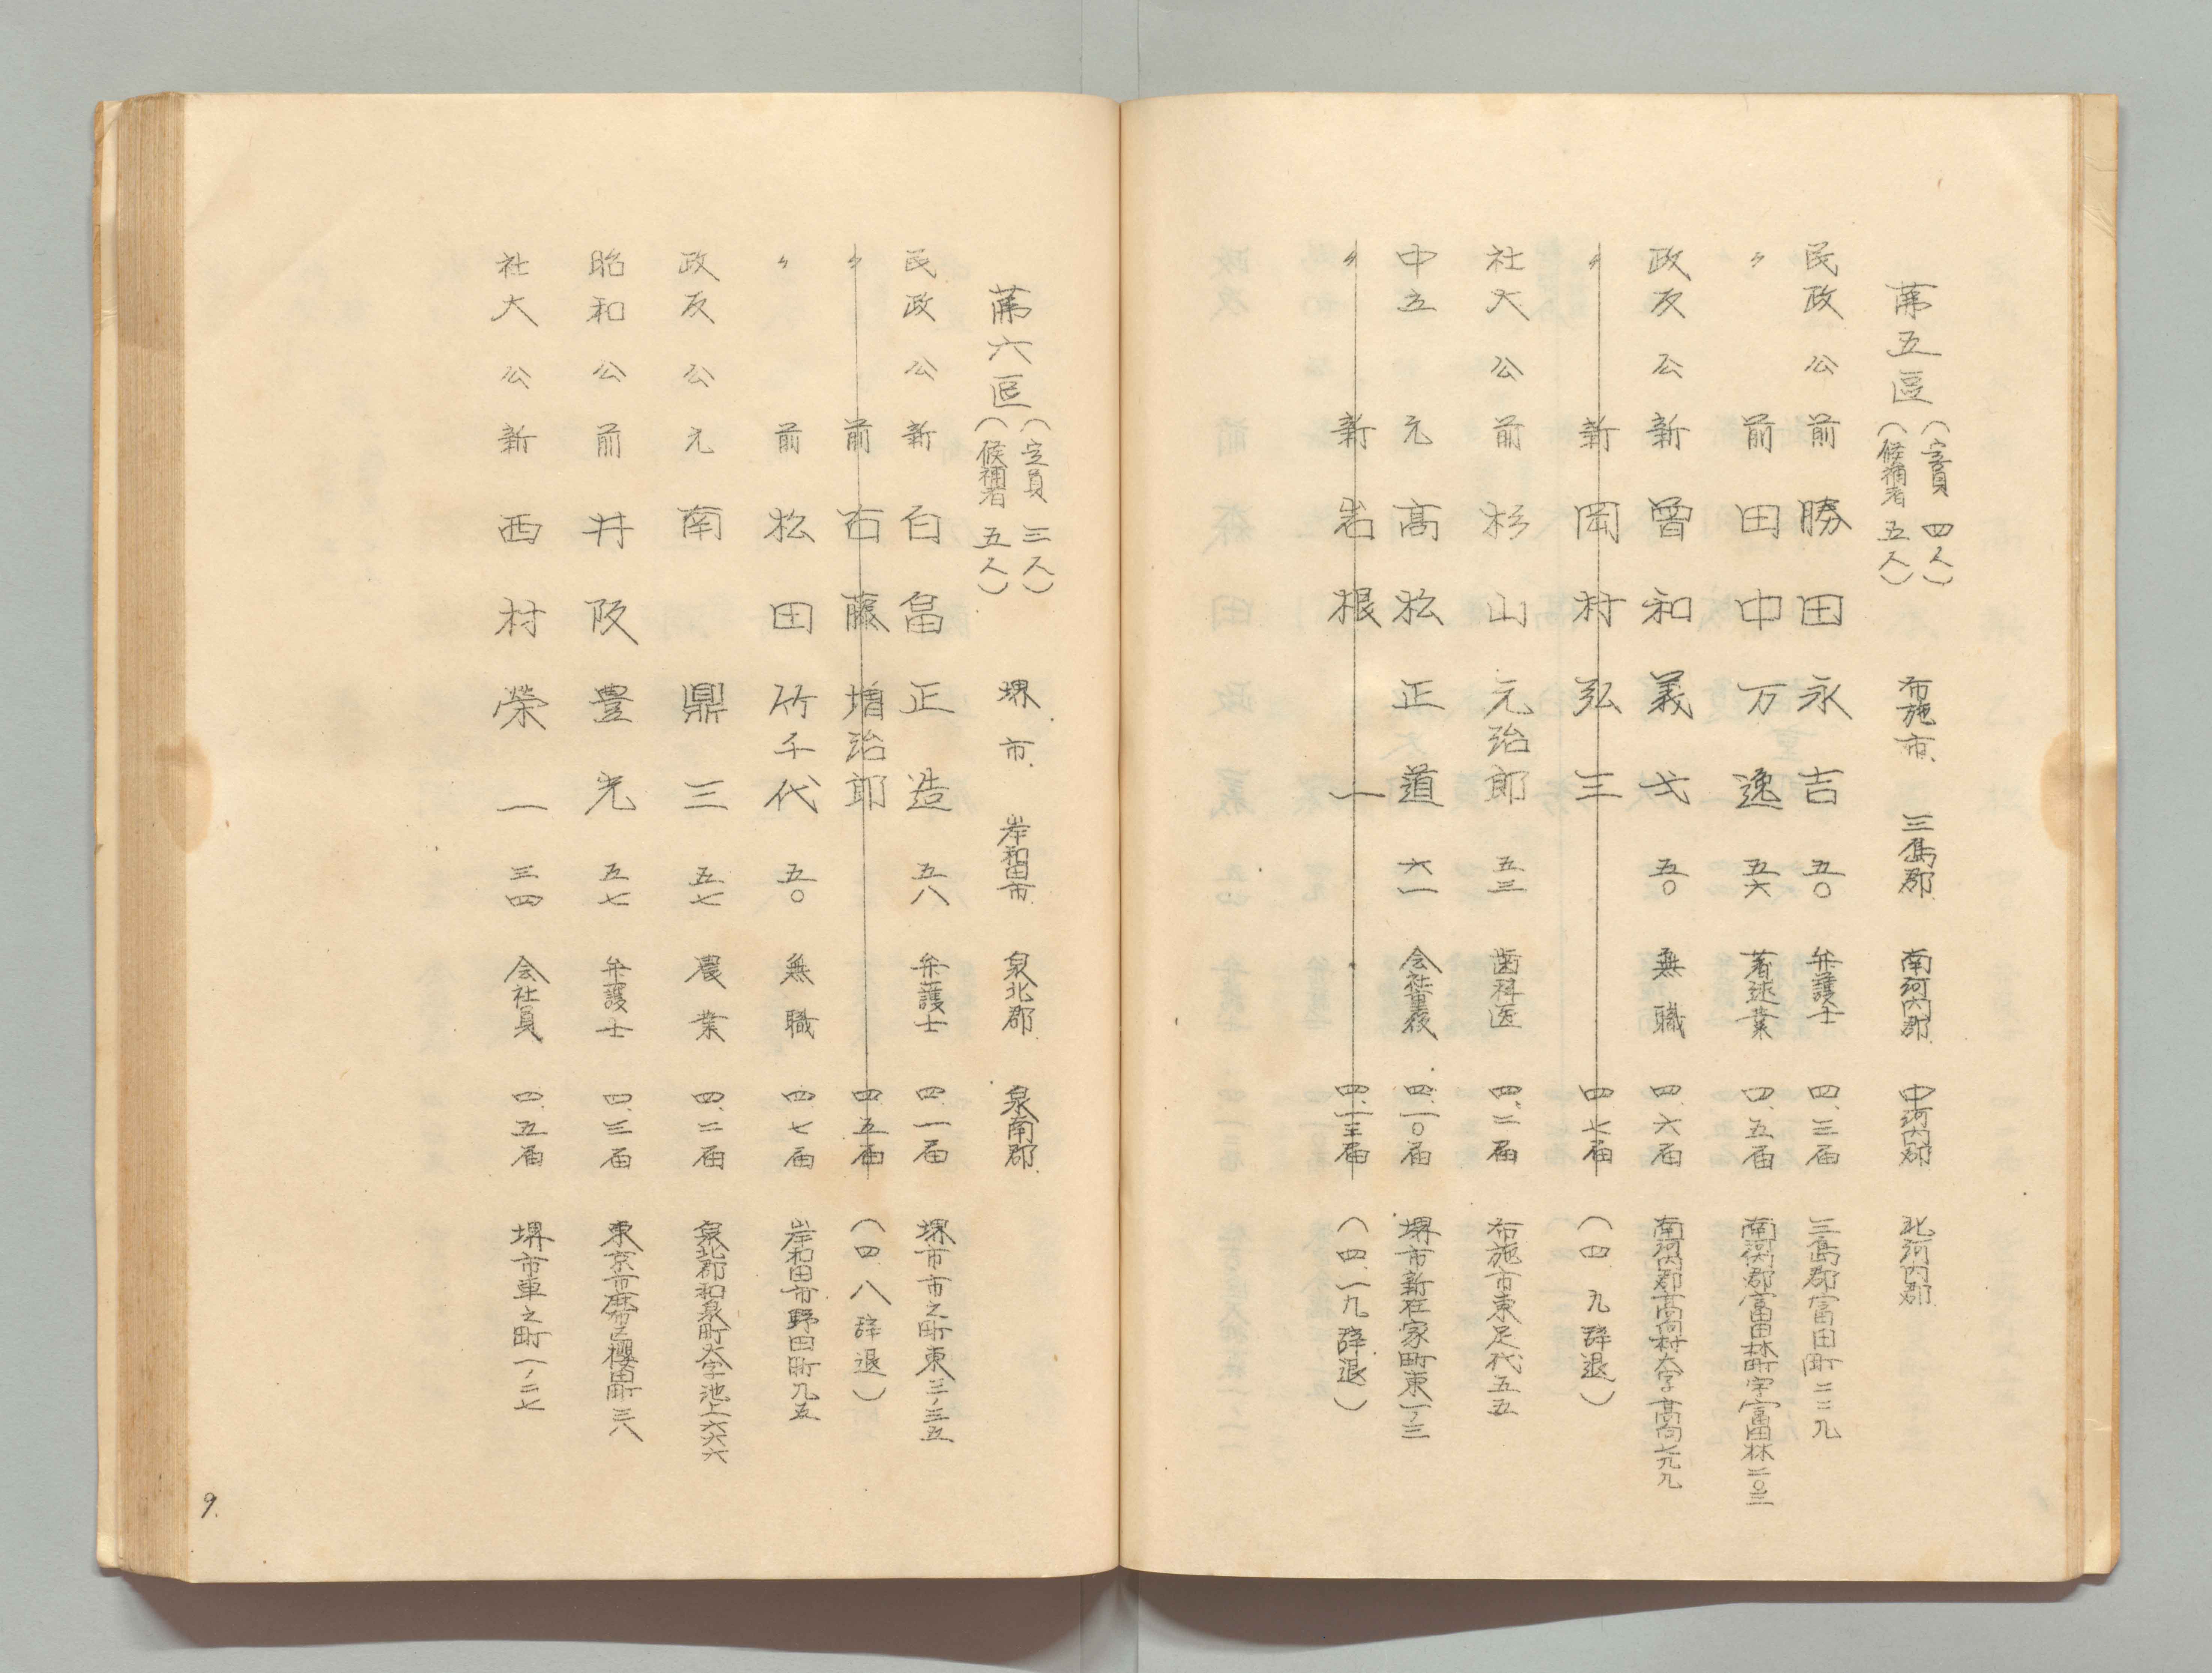 第五區(定員 四人)(候補者 五人) 布施市、三島郡、南河内郡、中河内郡、北河内郡
民政 公 前 勝田永吉 五〇 弁護士 四、三届 三島郡富田町二二九
〃 前 田中万逸 五六 著述業 四、五届 南河内郡富田林町字富田林二〇三
政友 公 新 曽和義弌 五〇 無職 四、六届 南河内郡高向村大字高向七九九
〃 新 岡村弘三 四、七届 (四、九辞退)
社大 公 前 杉山元治郎 五三 歯科医 四、二届 布施市東足代五五
中立 元 高松正道 六一 会社重役 四、一〇届 堺市新在家町東一ノ三
〃 新 岩根一 四、一三届 (四、一九辞退)
第六區(定員 三人)(候補者 五人) 堺市、岸和田市、泉北郡、泉南郡
民政 公 新 臼畠正造 五八 弁護士 四、一届 堺市市之町東三ノ三五
〃 前 右藤増治郎 四、五届 (四、八辞退)
〃 前 松田竹千代 五〇 無職 四、七届 岸和田市野田町九五
政友 公 元 南鼎三 五七 農業 四、二届 泉北郡和泉町大字池上六六六
昭和 公 前 井阪豊光 五七 弁護士 四、三届 東京市麻布区櫻田町三八
社大 公 新 西村榮一 三四 会社員 四、五届 堺市車之町一ノ二七
9.